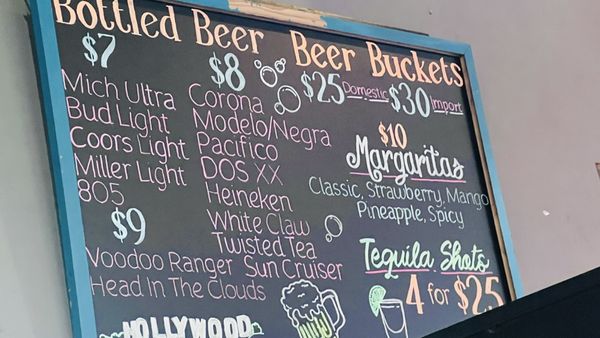 Bottled Beer
$7
Mich Ultra
Bud Light
Coors Light
Miller Light
805
$8
Corona
Modelo/Negra
Pacifico
DOS XX
Heineken
White Claw
Twisted Tea
Sun Cruiser
$9
Voodoo Ranger
Head In The Clouds
HOLLYWOOD
Beer Buckets
$25 Domestic $30 Import
$10
Margaritas
Classic, Strawberry, Mango
Pineapple, Spicy
Tequila Shots
4 for $25